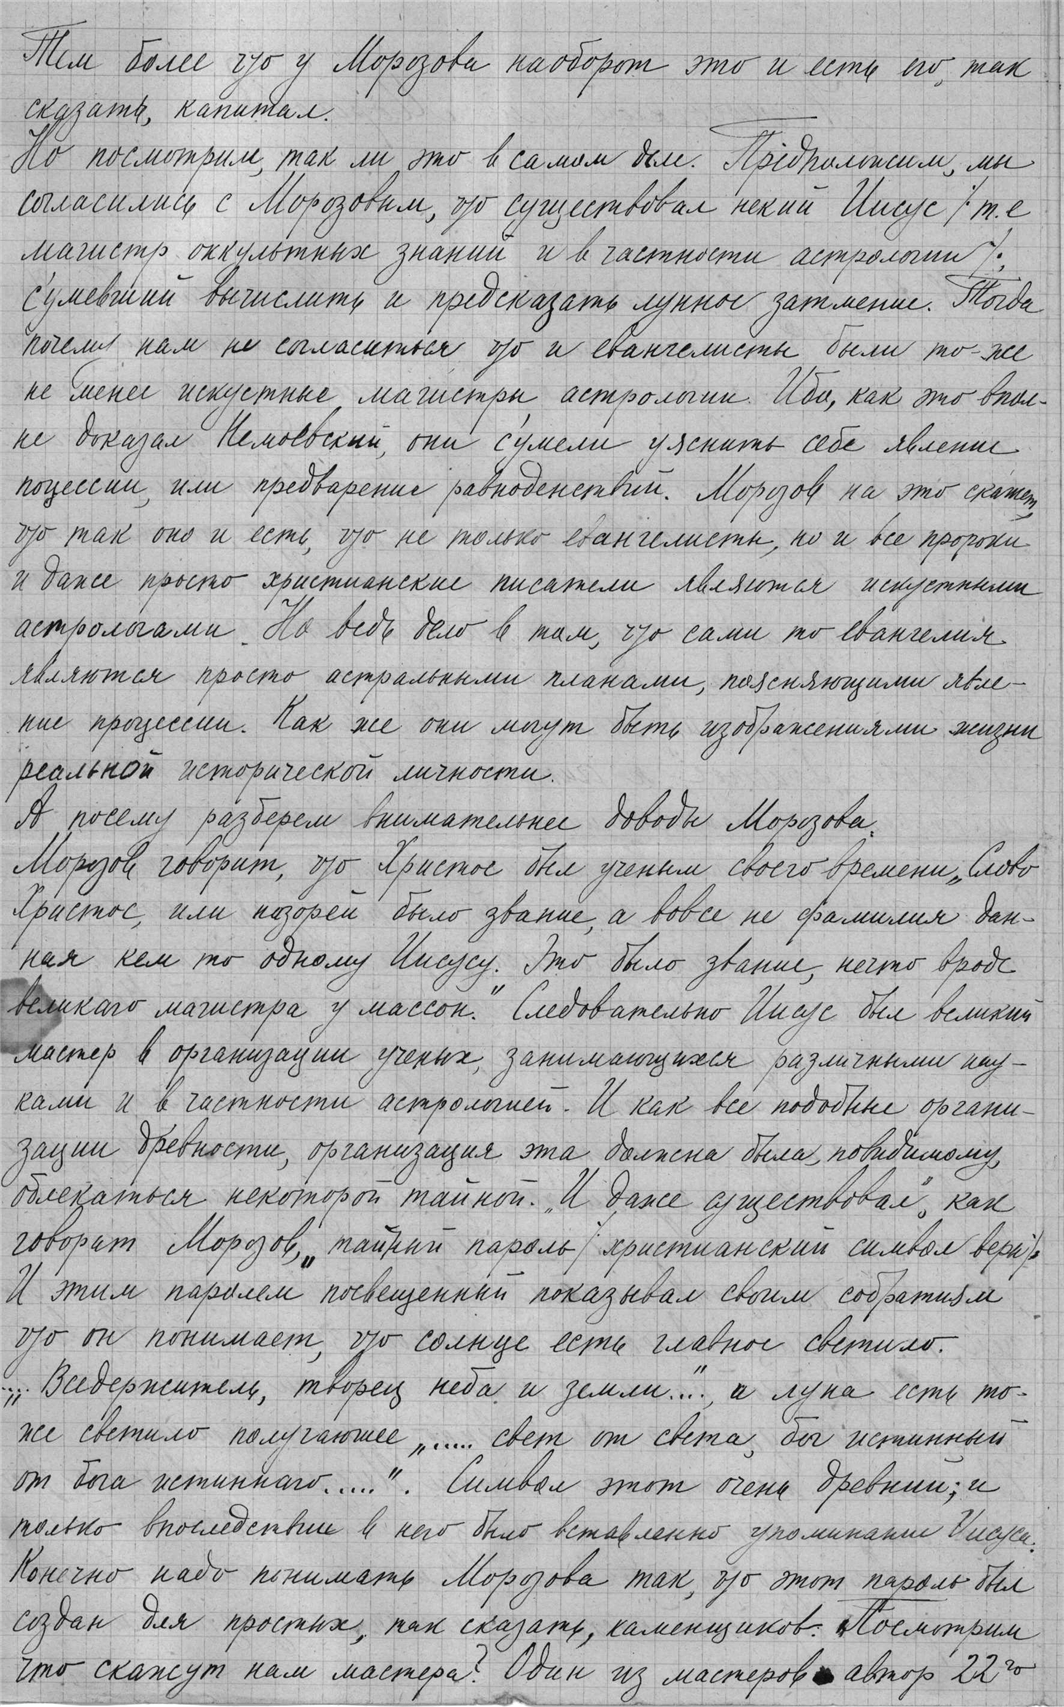 Тем более что у Морозова наоборот это и есть его, так
сказать, капитал.
Но посмотрим, так ли это в самом деле. Предположим, мы
согласились с Морозовым, что существовал некий Иисус /т.е
магистр оккультных знаний и в частности астрологии/,
сумевший вычислить и предсказать лунное затмение. Тогда
почему нам не согласиться что и евангелисты были то-же
не менее искустные магистры астрологии. Ибо, как это впол-
не доказал Немоевский, они сумели уяснить себе явление
поцессии, или предварение равноденствий. Морозов на это скажет,
что так оно и есть, что не только евангелисты, но и все пророки
и даже просто христианские писатели являются искустными
астрологами. Но ведь дело в том, что сами то евангелия
являются просто астральными планами, поясняющими явле-
ние процессии. Как же они могут быть изображениями жизни
реальной исторической личности.
А посему разберем внимательнее доводы Морозова.
Морозов говорит, что Христос был ученым своего времени „Слово
Христос, или назорей было звание, а вовсе не фамилия дан-
ная кем то одному Иисусу. Это было звание, нечто вроде
великаго магистра у массон." Следовательно Иисус был великий
мастер в организации ученых, занимающихся различными нау-
ками и в частности астрологией. И как все подобные органи-
зации древности, организация эта должна была, повидимому,
облекаться некоторой тайной. „И даже существовал", как
говорит Морозов, „тайный пароль /христианский символ веры/.
И этим паролем посвещенный показывал своим собратиям
что он понимает, что солнце есть главное светило.
„.... Вседержитель, творец неба и земли...", а луна есть то-
же светило получающее „..... свет от света, бог истинный
от бога истиннаго.....". Символ этот очень древний; и
только впоследствие в него было вставленно упоминание Иисуса.
Конечно надо понимать Морозова так, что этот пароль был
создан для простых, так сказать, каменщиков. Посмотрим
что скажут нам мастера? Один из мастеров автор 22го